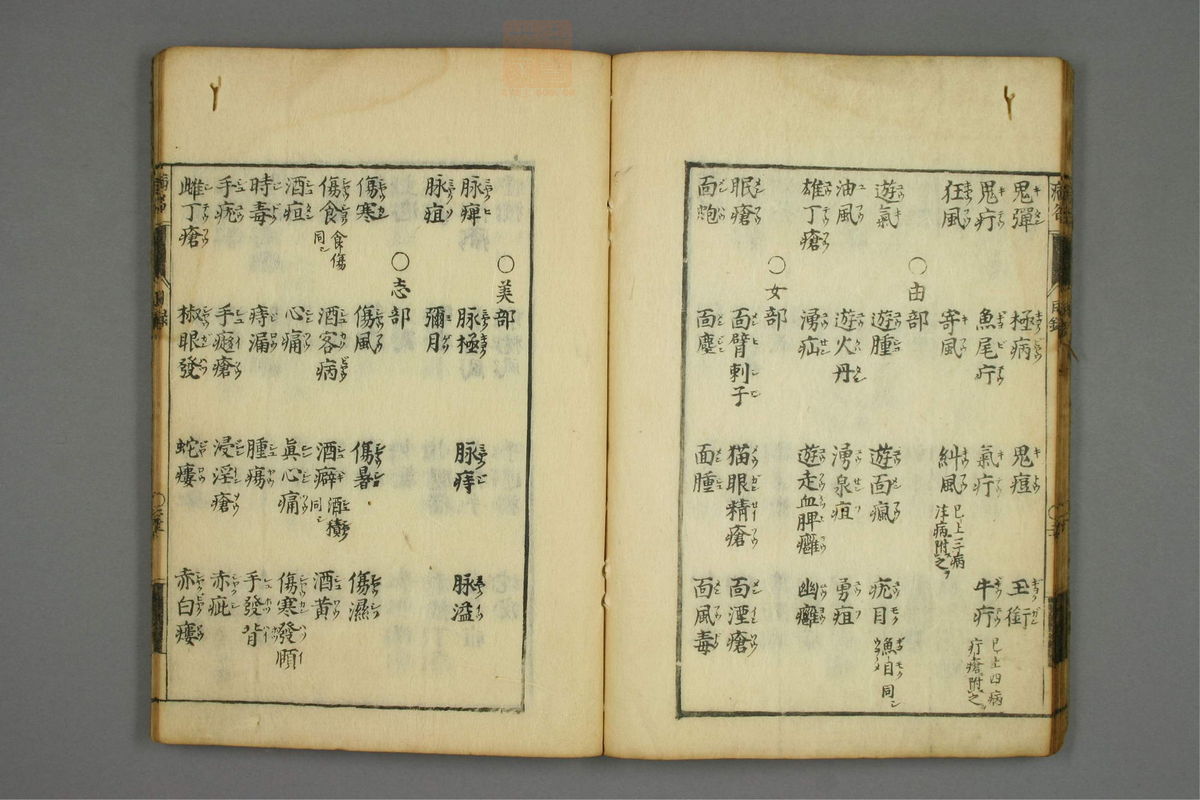 鬼彈 極病 鬼痘 玉銜
鬼疔 魚尾疔 氣疔 牛疔 已上四病疔瘡附之
狂風 寄風 糾風 已上三病注病附之
○由部
遊氣 遊腫 遊面瘋 疣目 魚目同
油風 遊火丹 湧泉疽 勇疽
雄丁瘡 湧疝 遊走血脾癰 幽癰
○女部
眠瘡 面臂刺子 猫眼精瘡 面湮瘡
面皰 面塵 面腫 面風毒
目錄
○美部
脉痺 脉極 脉痔 脉溢
脉疽 彌月
○志部
傷寒 傷風 傷暑 傷濕
傷食 食傷同 酒客病 酒癖 酒積同 酒黃
酒疸 心痛 眞心痛 傷寒發頤
時毒 痔漏 腫瘍 手發背
手疣 手瘂瘡 浸淫瘡 赤疵
雌丁瘡 椒眼發 蛇瘻 赤白瘻
目錄